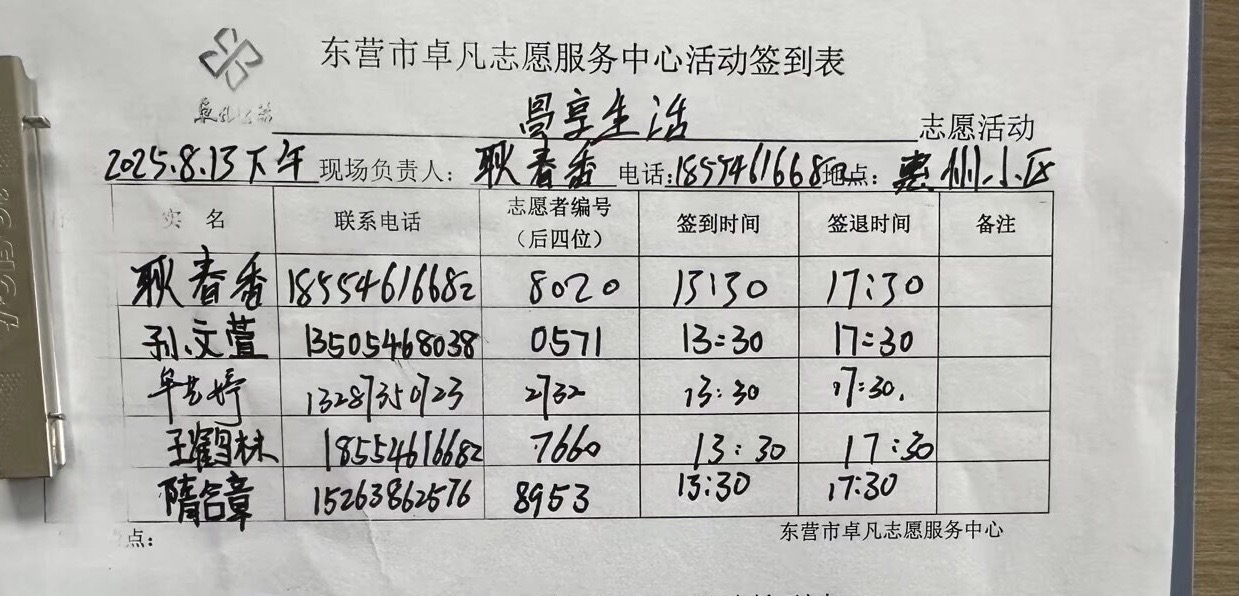 东营市卓凡志愿服务中心活动签到表
昌享生活 志愿活动
2025.8.13下午 现场负责人: 耿春香 电话:18554616682 地点: 惠州小区
实 名 联系电话 志愿者编号 (后四位) 签到时间 签退时间 备注
耿春香 18554616682 8020 13:30 17:30
孙文萱 13505468038 0571 13:30 17:30
牟艺婷 13287350723 2732 13:30 17:30.
王鹤林 18554616682 7660 13:30 17:30
隋合章 15263862576 8953 13:30 17:30
点:
东营市卓凡志愿服务中心